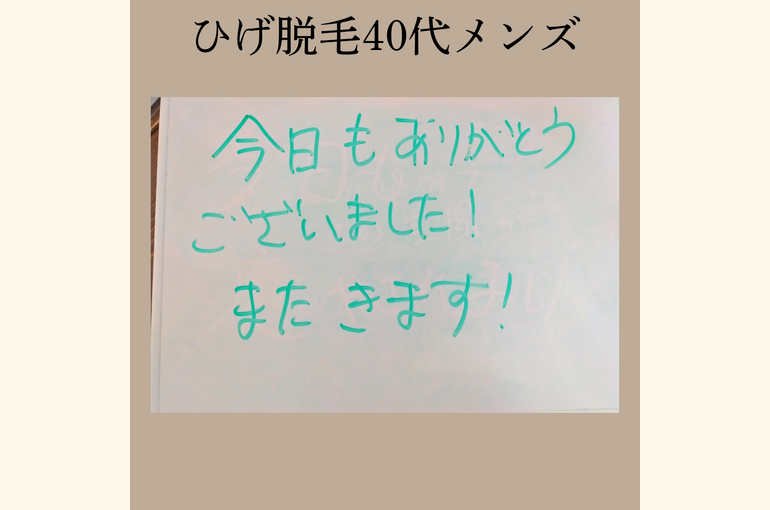 ひげ脱毛40代メンズ
今日もありがとう
ございました!
またきます!